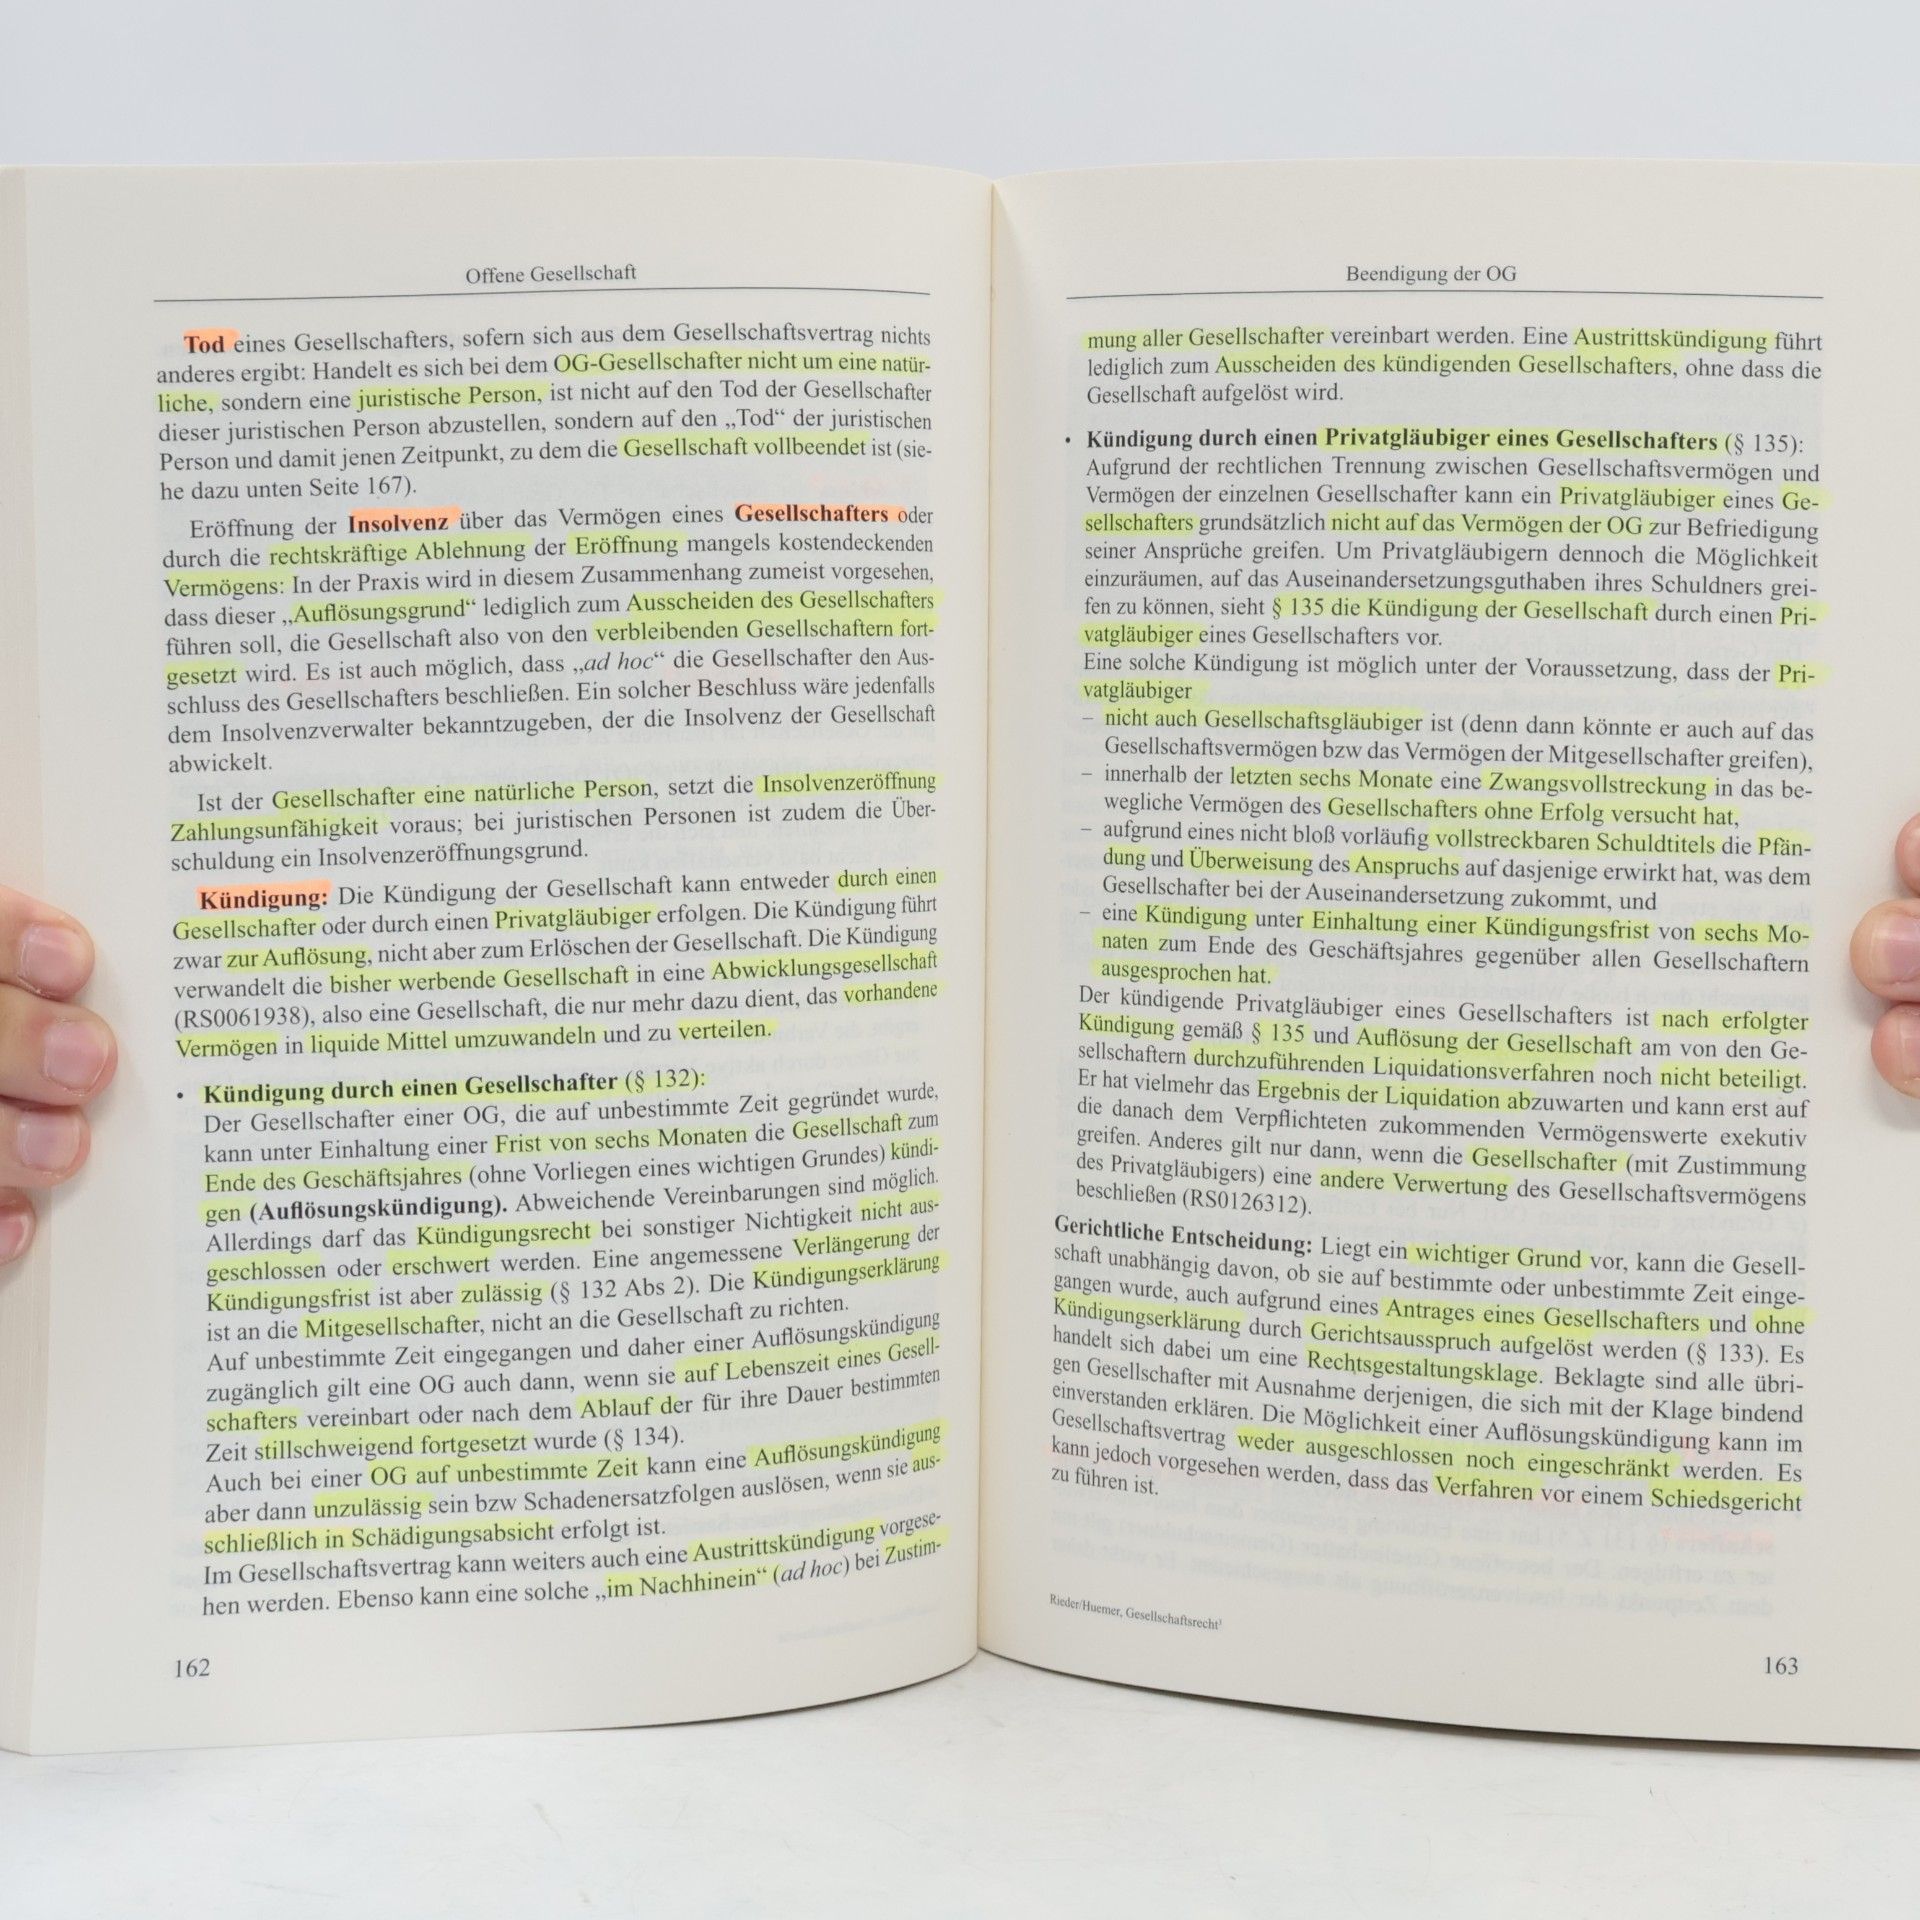 Offene Gesellschaft
Tod eines Gesellschafters, sofern sich aus dem Gesellschaftsvertrag nichts
anderes ergibt: Handelt es sich bei dem OG-Gesellschafter nicht um eine natür-
liche, sondern eine juristische Person, ist nicht auf den Tod der Gesellschafter
dieser juristischen Person abzustellen, sondern auf den „Tod“ der juristischen
Person und damit jenen Zeitpunkt, zu dem die Gesellschaft vollbeendet ist (sie-
he dazu unten Seite 167).
Eröffnung der Insolvenz über das Vermögen eines Gesellschafters oder
durch die rechtskräftige Ablehnung der Eröffnung mangels kostendeckenden
Vermögens: In der Praxis wird in diesem Zusammenhang zumeist vorgesehen,
dass dieser „Auflösungsgrund“ lediglich zum Ausscheiden des Gesellschafters
führen soll, die Gesellschaft also von den verbleibenden Gesellschaftern fort-
gesetzt wird. Es ist auch möglich, dass „ad hoc“ die Gesellschafter den Aus-
schluss des Gesellschafters beschließen. Ein solcher Beschluss wäre jedenfalls
dem Insolvenzverwalter bekanntzugeben, der die Insolvenz der Gesellschaft
abwickelt.
Ist der Gesellschafter eine natürliche Person, setzt die Insolvenzeröffnung
Zahlungsunfähigkeit voraus; bei juristischen Personen ist zudem die Über-
schuldung ein Insolvenzeröffnungsgrund.
Kündigung: Die Kündigung der Gesellschaft kann entweder durch einen
Gesellschafter oder durch einen Privatgläubiger erfolgen. Die Kündigung führt
zwar zur Auflösung, nicht aber zum Erlöschen der Gesellschaft. Die Kündigung
verwandelt die bisher werbende Gesellschaft in eine Abwicklungsgesellschaft
(RS0061938), also eine Gesellschaft, die nur mehr dazu dient, das vorhandene
Vermögen in liquide Mittel umzuwandeln und zu verteilen.
• Kündigung durch einen Gesellschafter (§ 132):
Der Gesellschafter einer OG, die auf unbestimmte Zeit gegründet wurde,
kann unter Einhaltung einer Frist von sechs Monaten die Gesellschaft zum
Ende des Geschäftsjahres (ohne Vorliegen eines wichtigen Grundes) kündi-
gen (Auflösungskündigung). Abweichende Vereinbarungen sind möglich.
Allerdings darf das Kündigungsrecht bei sonstiger Nichtigkeit nicht aus-
geschlossen oder erschwert werden. Eine angemessene Verlängerung der
Kündigungsfrist ist aber zulässig (§ 132 Abs 2). Die Kündigungserklärung
ist an die Mitgesellschafter, nicht an die Gesellschaft zu richten.
Auf unbestimmte Zeit eingegangen und daher einer Auflösungskündigung
zugänglich gilt eine OG auch dann, wenn sie auf Lebenszeit eines Gesell-
schafters vereinbart oder nach dem Ablauf der für ihre Dauer bestimmten
Zeit stillschweigend fortgesetzt wurde (§ 134).
Auch bei einer OG auf unbestimmte Zeit kann eine Auflösungskündigung
aber dann unzulässig sein bzw Schadenersatzfolgen auslösen, wenn sie aus-
schließlich in Schädigungsabsicht erfolgt ist.
Im Gesellschaftsvertrag kann weiters auch eine Austrittskündigung vorgese-
hen werden. Ebenso kann eine solche „im Nachhinein“ (ad hoc) bei Zustim-
162
Beendigung der OG
mung aller Gesellschafter vereinbart werden. Eine Austrittskündigung führt
lediglich zum Ausscheiden des kündigenden Gesellschafters, ohne dass die
Gesellschaft aufgelöst wird.
• Kündigung durch einen Privatgläubiger eines Gesellschafters (§ 135):
Aufgrund der rechtlichen Trennung zwischen Gesellschaftsvermögen und
Vermögen der einzelnen Gesellschafter kann ein Privatgläubiger eines Ge-
sellschafters grundsätzlich nicht auf das Vermögen der OG zur Befriedigung
seiner Ansprüche greifen. Um Privatgläubigern dennoch die Möglichkeit
einzuräumen, auf das Auseinandersetzungsguthaben ihres Schuldners grei-
fen zu können, sieht § 135 die Kündigung der Gesellschaft durch einen Pri-
vatgläubiger eines Gesellschafters vor.
Eine solche Kündigung ist möglich unter der Voraussetzung, dass der Pri-
vatgläubiger
– nicht auch Gesellschaftsgläubiger ist (denn dann könnte er auch auf das
Gesellschaftsvermögen bzw das Vermögen der Mitgesellschafter greifen),
– innerhalb der letzten sechs Monate eine Zwangsvollstreckung in das be-
wegliche Vermögen des Gesellschafters ohne Erfolg versucht hat,
– aufgrund eines nicht bloß vorläufig vollstreckbaren Schuldtitels die Pfän-
dung und Überweisung des Anspruchs auf dasjenige erwirkt hat, was dem
Gesellschafter bei der Auseinandersetzung zukommt, und
– eine Kündigung unter Einhaltung einer Kündigungsfrist von sechs Mo-
naten zum Ende des Geschäftsjahres gegenüber allen Gesellschaftern
ausgesprochen hat.
Der kündigende Privatgläubiger eines Gesellschafters ist nach erfolgter
Kündigung gemäß § 135 und Auflösung der Gesellschaft am von den Ge-
sellschaftern durchzuführenden Liquidationsverfahren noch nicht beteiligt.
Er hat vielmehr das Ergebnis der Liquidation abzuwarten und kann erst auf
die danach dem Verpflichteten zukommenden Vermögenswerte exekutiv
greifen. Anderes gilt nur dann, wenn die Gesellschafter (mit Zustimmung
des Privatgläubigers) eine andere Verwertung des Gesellschaftsvermögens
beschließen (RS0126312).
Gerichtliche Entscheidung: Liegt ein wichtiger Grund vor, kann die Gesell-
schaft unabhängig davon, ob sie auf bestimmte oder unbestimmte Zeit einge-
gangen wurde, auch aufgrund eines Antrages eines Gesellschafters und ohne
Kündigungserklärung durch Gerichtsausspruch aufgelöst werden (§ 133). Es
handelt sich dabei um eine Rechtsgestaltungsklage. Beklagte sind alle übri-
gen Gesellschafter mit Ausnahme derjenigen, die sich mit der Klage bindend
einverstanden erklären. Die Möglichkeit einer Auflösungskündigung kann im
Gesellschaftsvertrag weder ausgeschlossen noch eingeschränkt werden. Es
kann jedoch vorgesehen werden, dass das Verfahren vor einem Schiedsgericht
zu führen ist.
Rieder/Huemer, Gesellschaftsrecht³
163